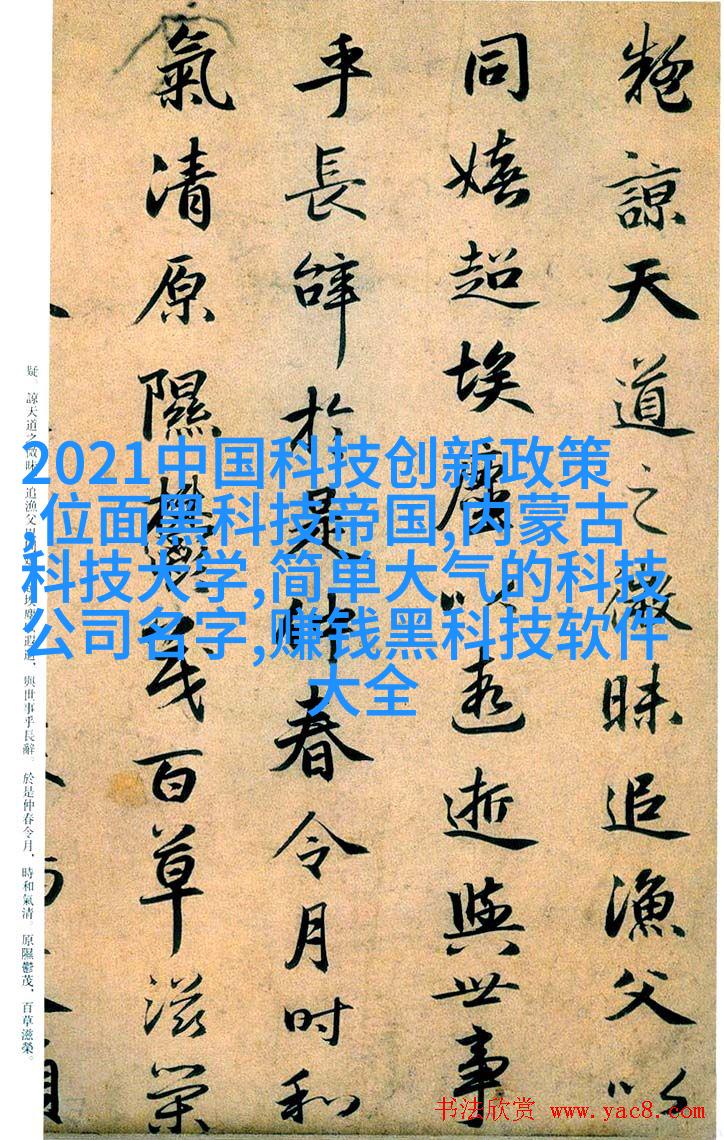 疑諒天道之微昧追漁父以
同嬉超埃塵以遐逝與世事
乎長辭於是仲春令月时和
氣清原隰欝茂百草滋榮
疑。諒天道之微昧，追漁父
遐逝，與世事乎長辭。於是仲春令月，時和氣清。原隰鬱茂，百草滋榮。
2021中国科技创新政策
,位面黑科技帝国,内蒙古
科技大学,简单大气的科技
公司名字,赚钱黑科技软件
大全
书法欣赏 www.yac8.com